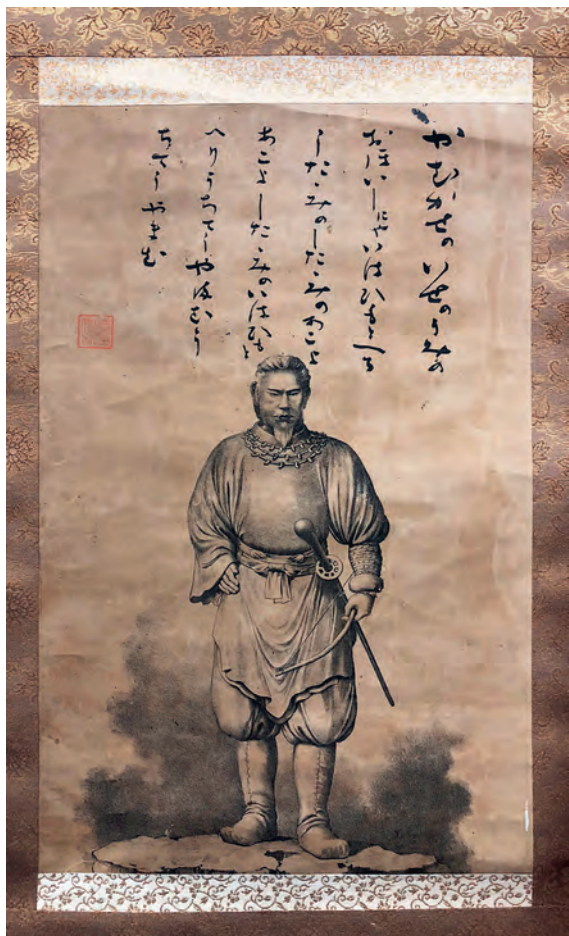 かむかせのいせのうみの
おほいしにやいはひもとへる
したゝみのしたゝみのあこよ
あこよしたゝみのいはひもと
へりうちてしやまむう
ちてしやまむ